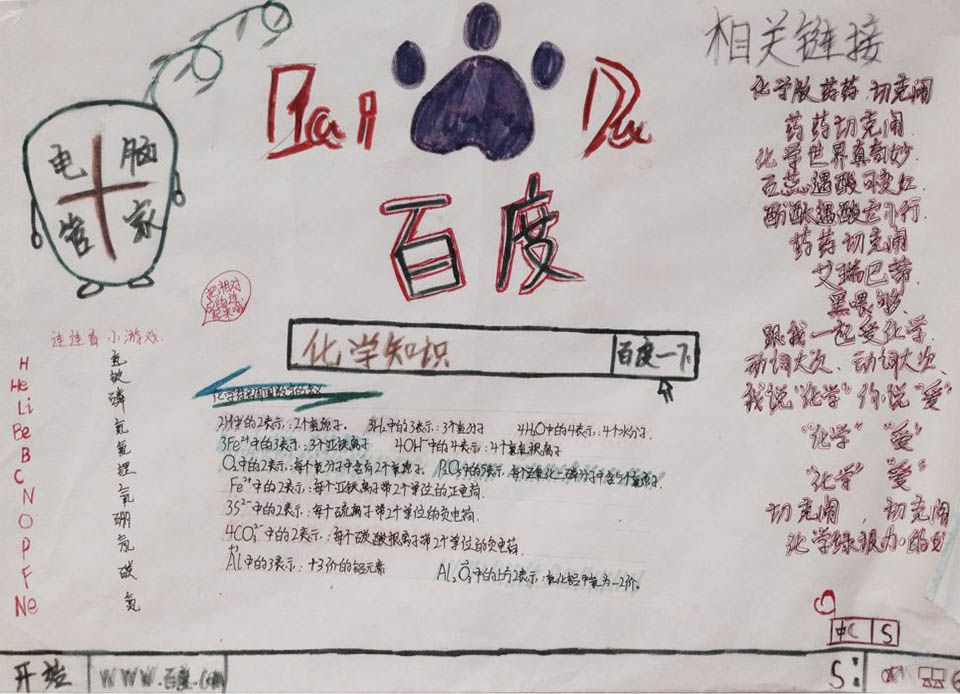 Bai Du
相关链接
电脑
管家
百度
化学版药药切克闹
药药切克闹
化学世界真奇妙
石蕊遇酸可变红
酚酞遇酸它不行
药药切克闹
艾瑞巴蒂
黑喂够
跟我一起爱化学
动词大次 动词大次
我说"化学"你说"爱"
"化学" "爱"
"化学" "爱"
切克闹 切克闹
化学知识
百度一下
连连看小游戏
H
He
Li
Be
B
C
N
O
P
F
Ne
氢
磷
氧
硼
氖
碳
氮
2H中的2表示:2个氢原子。 3H₂中的3表示:3个氢分子 4H₂O中的4表示:4个水分子.
3Fe²⁺中的3表示:3个亚铁离子 4OH⁻中的4表示:4个氢氧根离子
O₂中的2表示:每个氧分子中含有2个氧原子。 P₂O₅中的5表示:每个五氧化二磷分子中含5个氧原子
Fe²⁺中的2表示:每个亚铁离子带2个单位的正电荷.
3S²⁻中的2表示:每个硫离子带2个单位的负电荷.
4CO₃²⁻中的2表示:每个碳酸根离子带2个单位的负电荷.
+3
Al中的3表示:+3价的铝元素
Al₂O₃中的上方2表示:氧化铝中氧为-2价。
中 S
开始
www.百度.com
S: